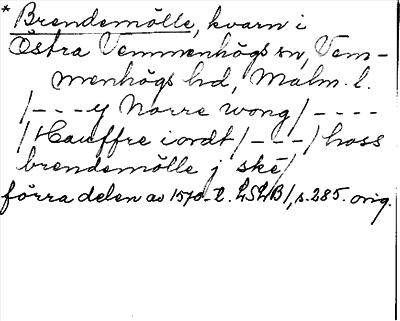 * Brendemölle, kvarn i
Östra Vemmenhögs sn, Vem-
menhögs hd, Malm. l.
/---y Norre wong/----
/Hauffre iordt/---/hoss
brendemölle j ske/
förra delen av 1570-t. LSLB1, s. 285. orig.